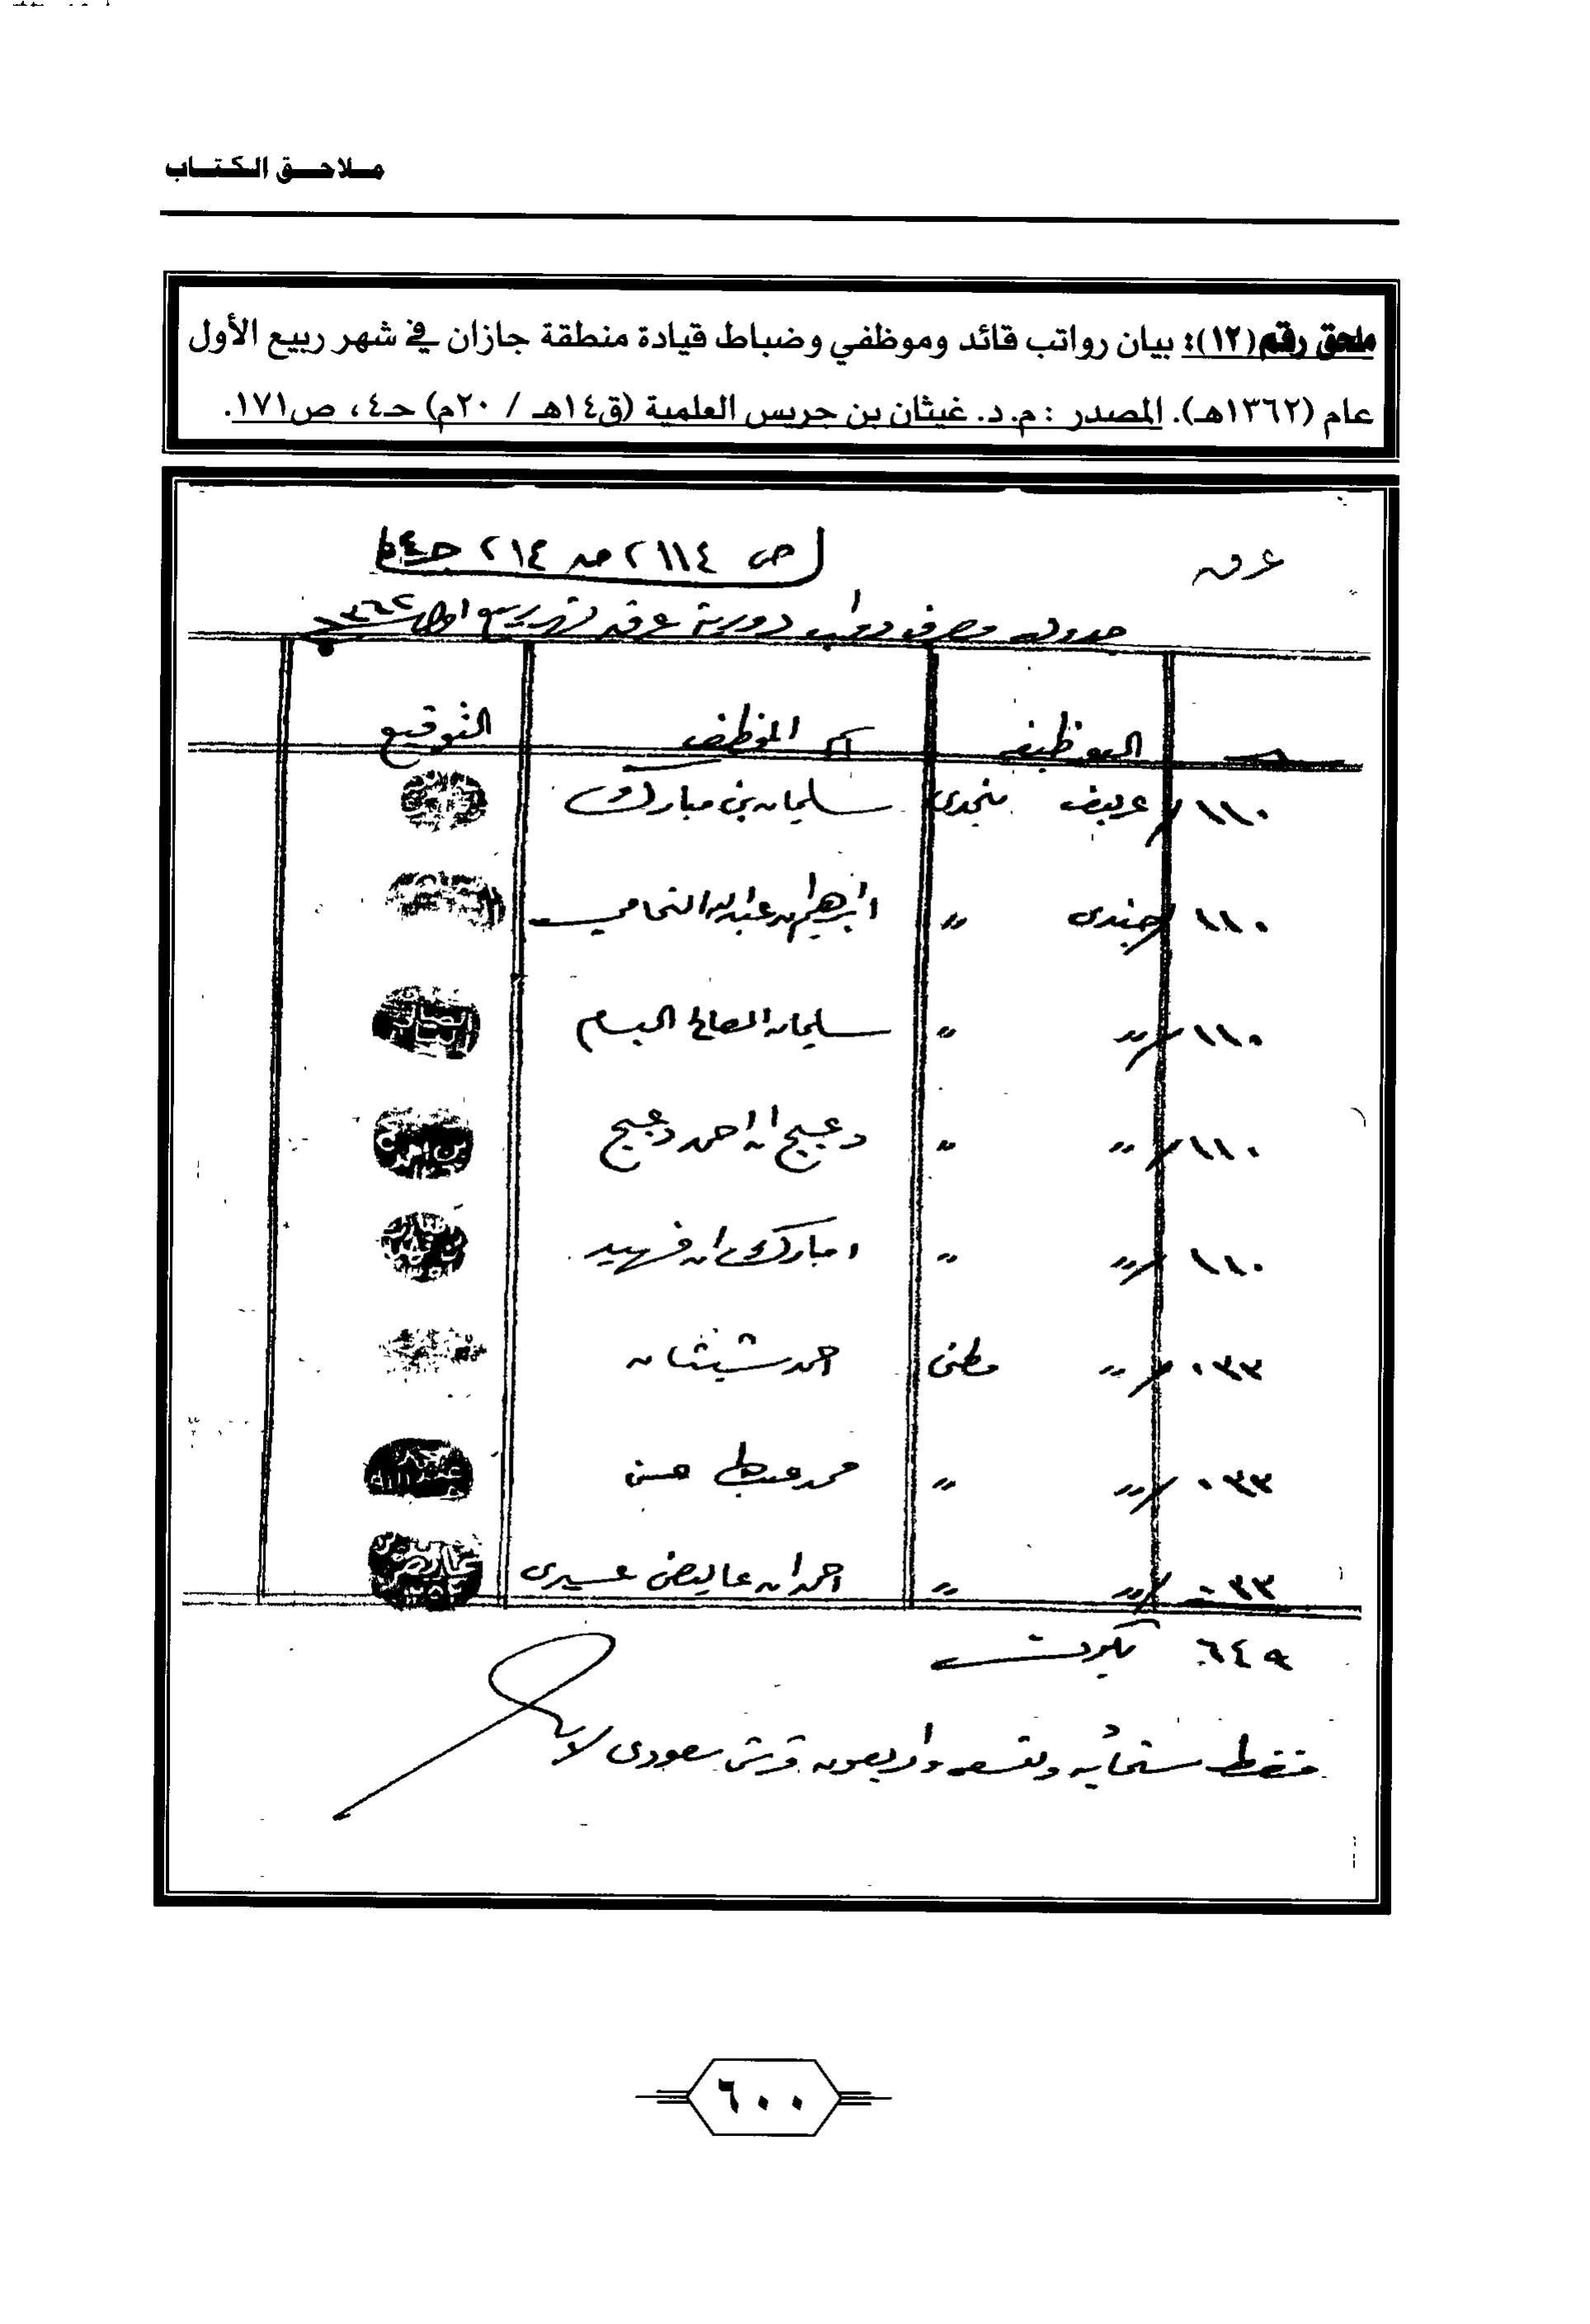 ملاحق الكتاب
ملحق رقم (١٢): بيان رواتب قائد وموظفي وضباط قيادة منطقة جازان في شهر ربيع الأول
عام (١٣٦٢هـ). المصدر : م. د. غيثان بن جريس العلمية (ق١٤هـ / ٢٠م) حـ٤ ، ص١٧١.
ص ٢١١٤ صـ ٢١٤ جـ٤
جدول صرف رواتب دورية عرقه شهر ربيع اول ١٣٦٢
الوظيفه اسم الموظف التوقيع
١١٠ عريف نجدى سليمان بن مبارك
١١٠ جندى " ابراهيم بن عبدالله
١١٠ " " سليمان الصالح البسام
١١٠ " " دعيج ابن احمد دعيج
١١٠ " " امبارك ابن فهيد
٠٣٣ " وطنى احمد
٠٣٣ " " محمد حسن
٠٣٣ " " احمد ابن عايض عسيرى
٦٤٩ يكون
فقط ستمائه وتسعه واربعون قرش سعودى لا
٦٠٠